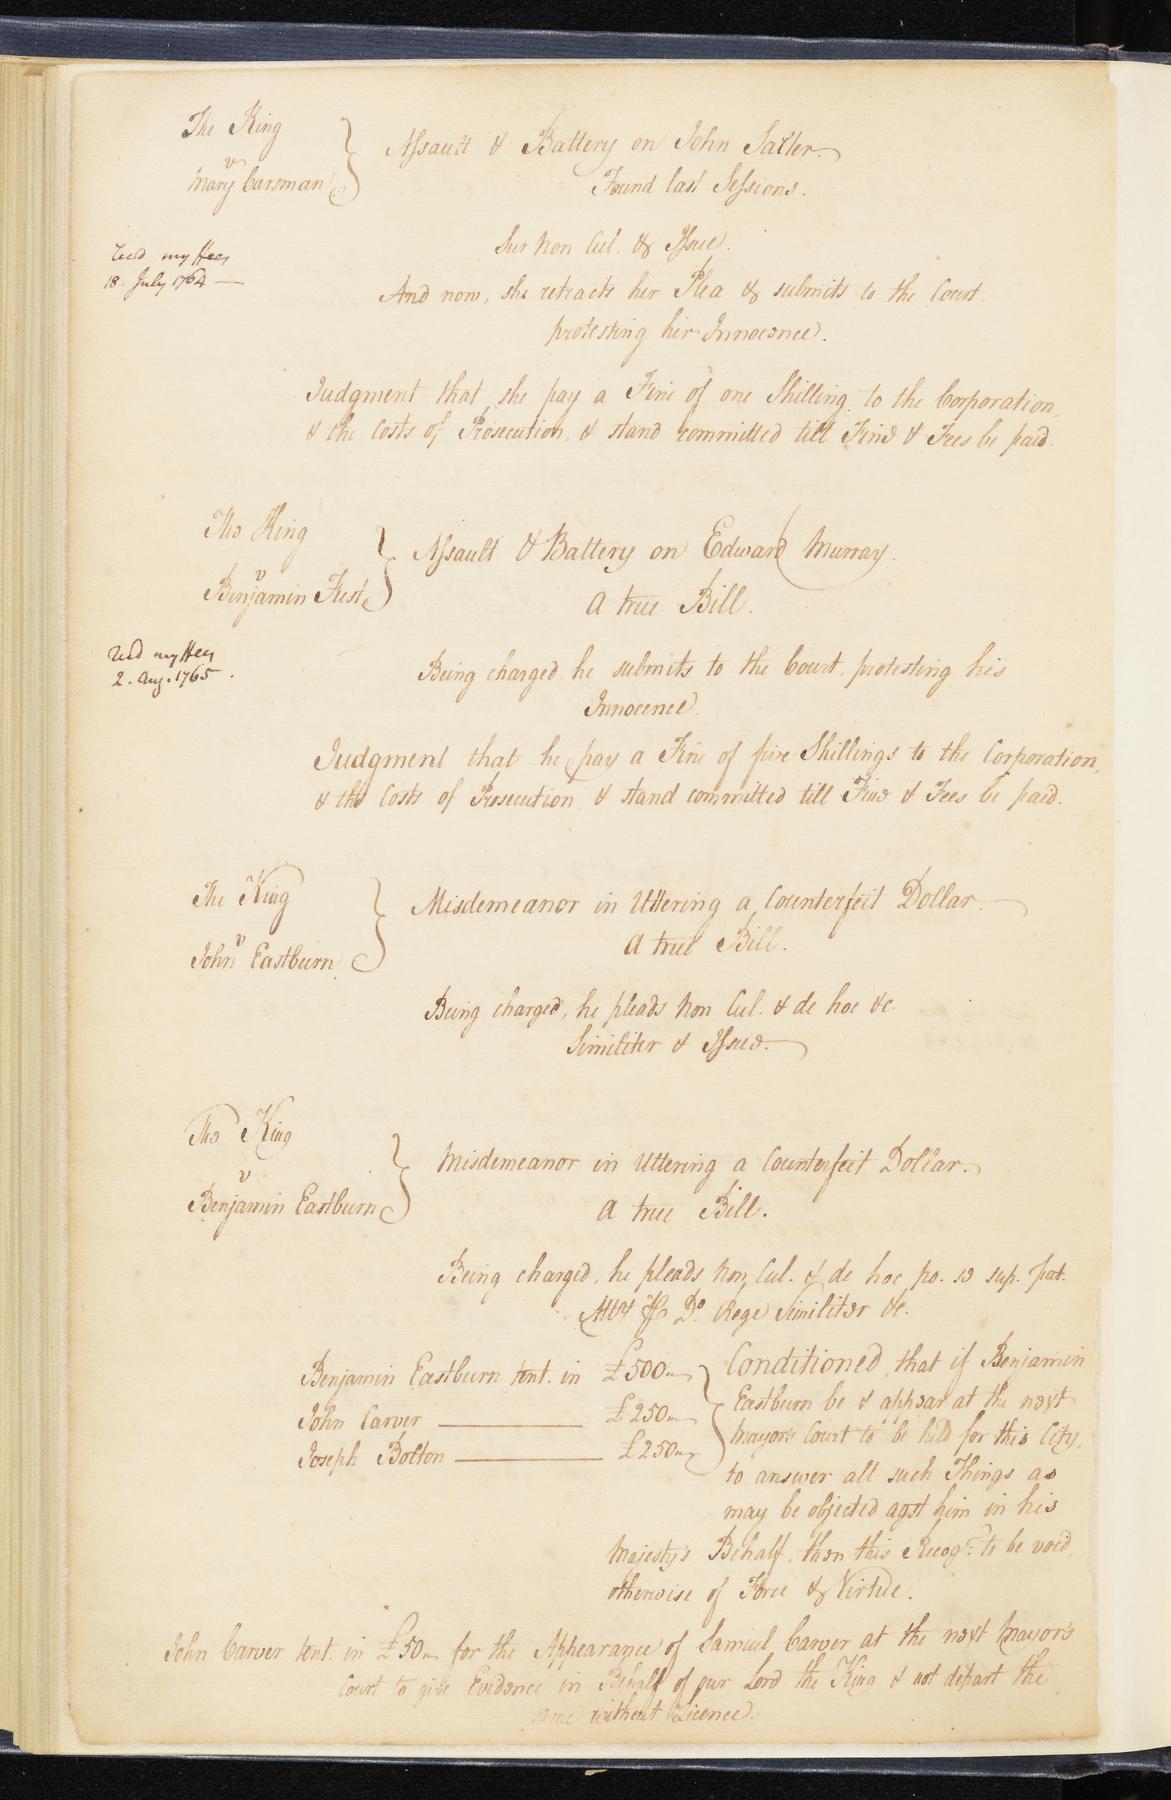 The King
v
Mary Carsman
Assault & Battery on John Satler.
Found last Sessions.
Sur Non Cul. & Issue.
Recd my Fees
18. July 1764 —
And now, she retracts her Plea & submits to the Court
protesting her Innocence.
Judgment that she pay a Fine of one Shilling to the Corporation,
& the Costs of Prosecution, & stand committed till Fine & Fees be paid.
The King
v
Benjamin Fust
Assault & Battery on Edward Murray.
A true Bill.
Recd my Fees
2. Aug. 1765.
Being charged, he submits to the Court, protesting his
Innocence.
Judgment that he pay a Fine of five Shillings to the Corporation,
& the Costs of Prosecution, & stand committed till Fine & Fees be paid.
The King
v
John Eastburn
Misdemeanor in Uttering a Counterfeit Dollar.
A true Bill.
Being charged, he pleads Non Cul. & de hoc &c.
Similiter & Issue.
The King
v
Benjamin Eastburn
Misdemeanor in Uttering a Counterfeit Dollar.
A true Bill.
Being charged, he pleads Non Cul. & de hoc po. se sup. pat.
Atty Do. Rege Similiter &c.
Benjamin Eastburn tent. in £500
John Carver £250
Joseph Bolton £250
Conditioned, that if Benjamin
Eastburn be & appear at the next
Mayor's Court to be held for this City,
to answer all such Things as
may be objected agst him in his
Majesty's Behalf, then this Recogce to be void,
otherwise of Force & Virtue.
John Carver tent. in £50 for the Appearance of Samuel Carver at the next Mayor's
Court to give Evidence in Behalf of our Lord the King & not depart the
same without Licence.